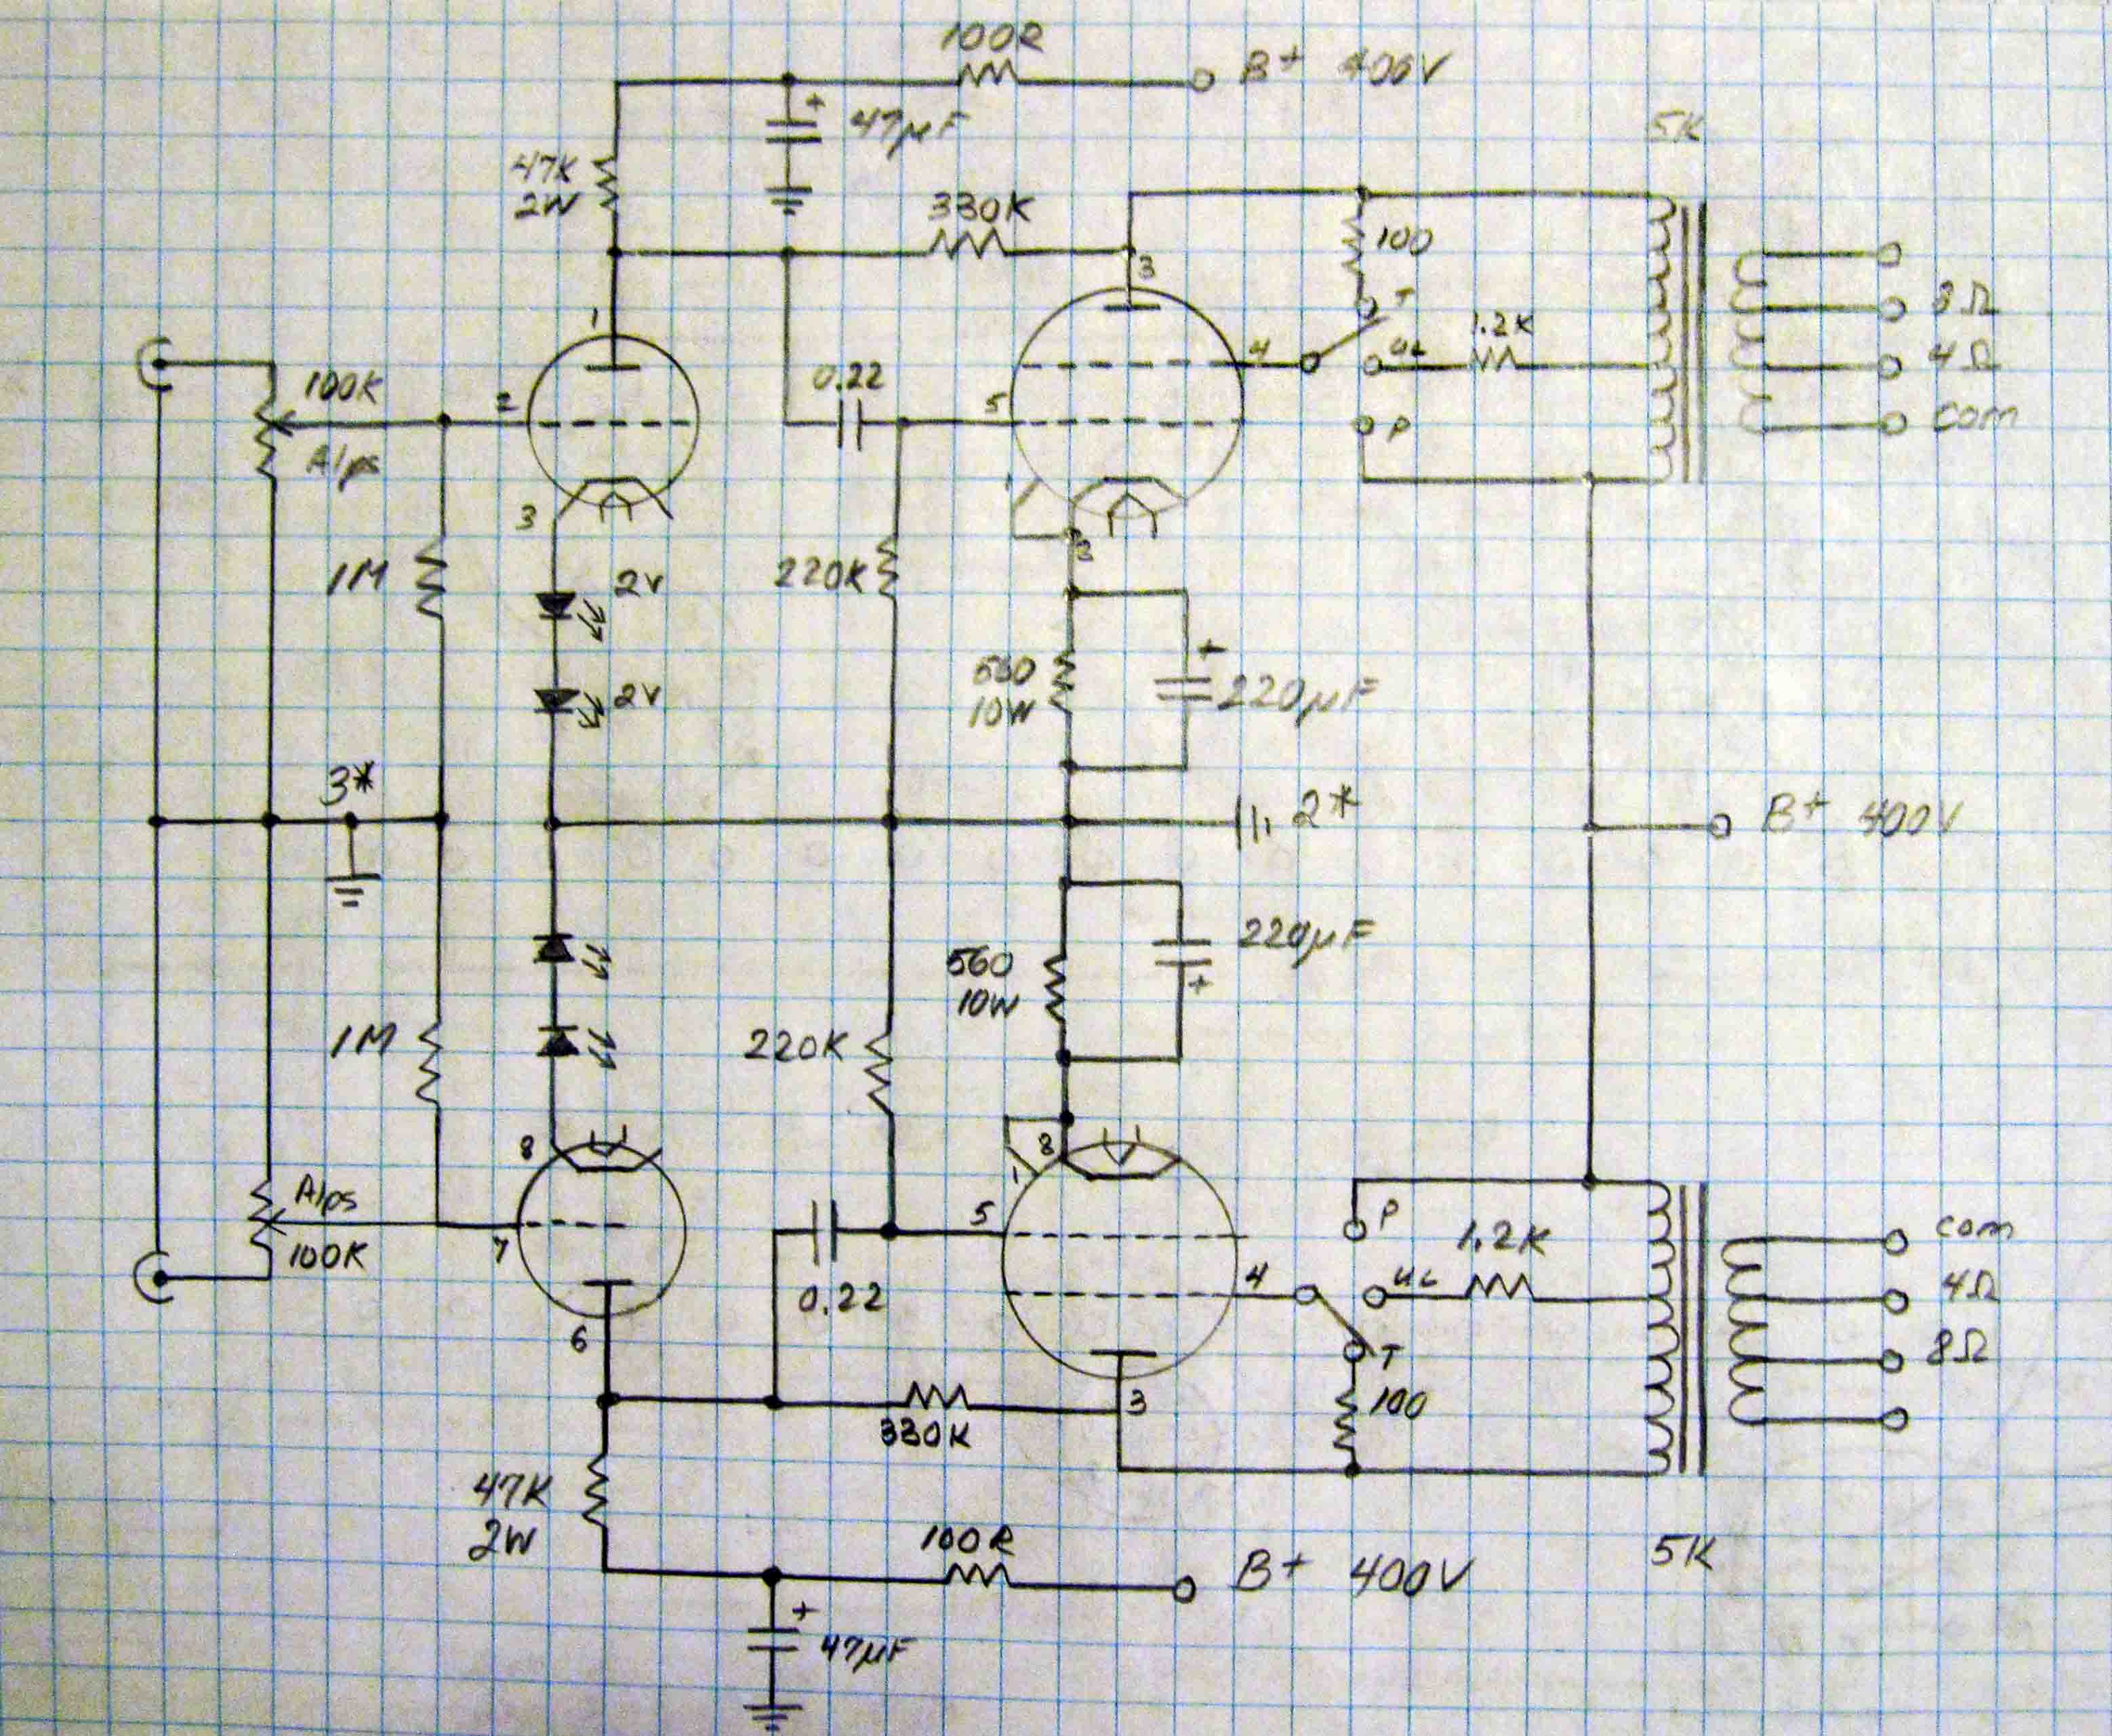 100R
B+ 400V
47µF
5K
47K
2W
330K
3
100
T
1
4
UL
1.2K
8Ω
4Ω
100K
2
0.22
5
P
com
Alps
3
1M
2V
220K
2V
560
10W
+
220µF
3*
2*
B+ 400V
560
10W
220µF
+
1M
220K
8
8
1
Alps
100K
7
5
P
1.2K
com
4
UL
4Ω
0.22
6
T
8Ω
3
100
330K
47K
2W
100R
B+ 400V
5K
+
47µF